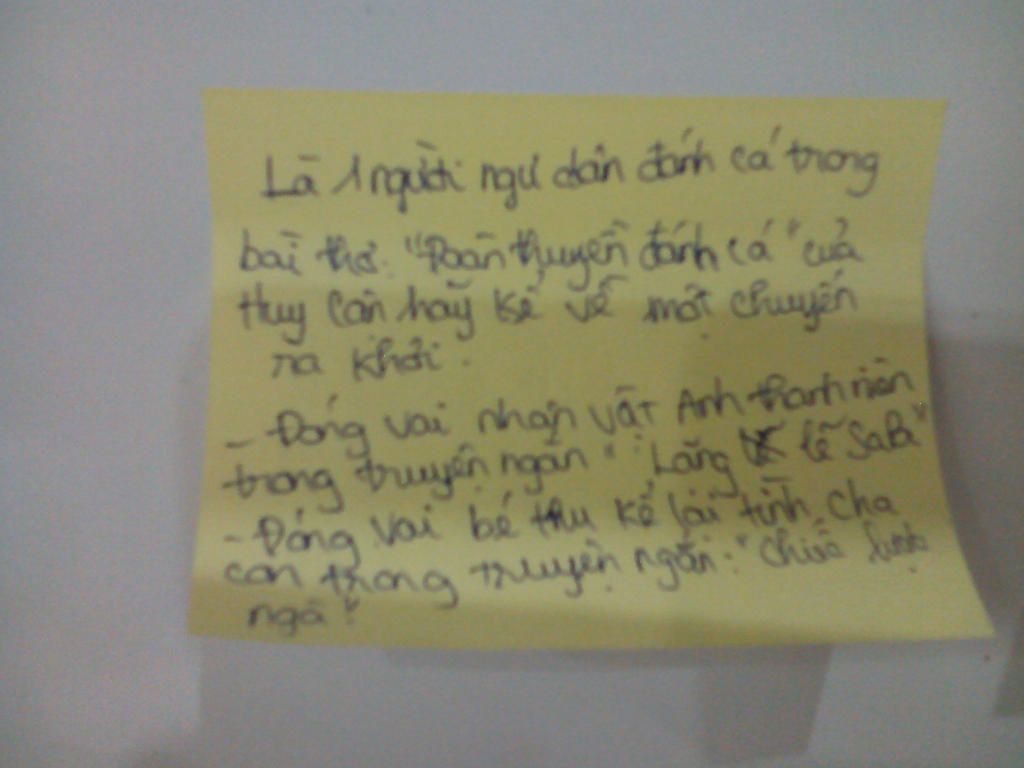 Là 1 người ngư dân đánh cá trong
bài thơ: "Đoàn thuyền đánh cá" của
Huy Cận hãy kể về một chuyến
ra khơi.
- Đóng vai nhân vật Anh thanh niên
trong truyện ngắn "Lặng lẽ SaPa"
- Đóng vai bé thu kể lại tình cha
con trong truyện ngắn: "Chiếc lược
ngà"